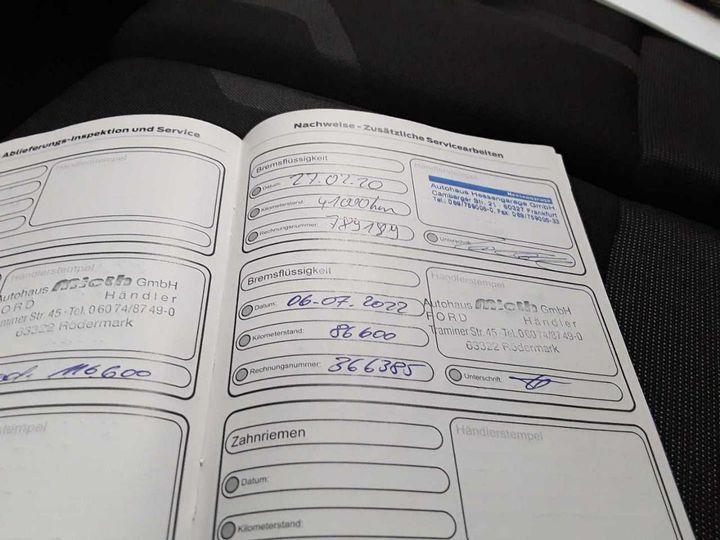 Ablieferungs-inspektion und Service
Händlerstempel
Händlerstempel
Autohaus mieth GmbH
FORD Händler
Traminer Str. 45 · Tel. 0 60 74/87 49-0
63322 Rödermark
116.600
Händlerstempel
Nachweise - Zusätzliche Servicearbeiten
Bremsflüssigkeit
Datum: 27.02.20
Kilometerstand: 41000km
Rechnungsnummer: 789189
Händlerstempel
Autohaus Hessengarage GmbH
Camberger Str. 21 · 60327 Frankfurt
Unterschrift:
Bremsflüssigkeit
Datum: 06.07.2022
Kilometerstand: 86600
Rechnungsnummer: 366385
Händlerstempel
Autohaus mieth GmbH
FORD Händler
Traminer Str. 45 · Tel. 0 60 74/87 49-0
63322 Rödermark
Unterschrift:
Zahnriemen
Datum:
Kilometerstand:
Händlerstempel